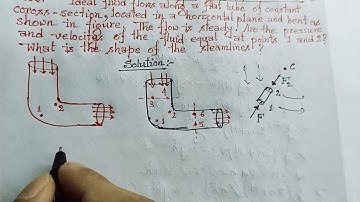 Ideal fluid flows along a flat tube of constant
cross-section, located in a horizontal plane and bent as
shown in figure. The flow is steady. Are the pressure
and velocities of the fluid equal at points 1 and 2?
What is the shape of the streamlines?
Solution:-
1 2
3 4
1 2
6
5
C
F2
2
1
F